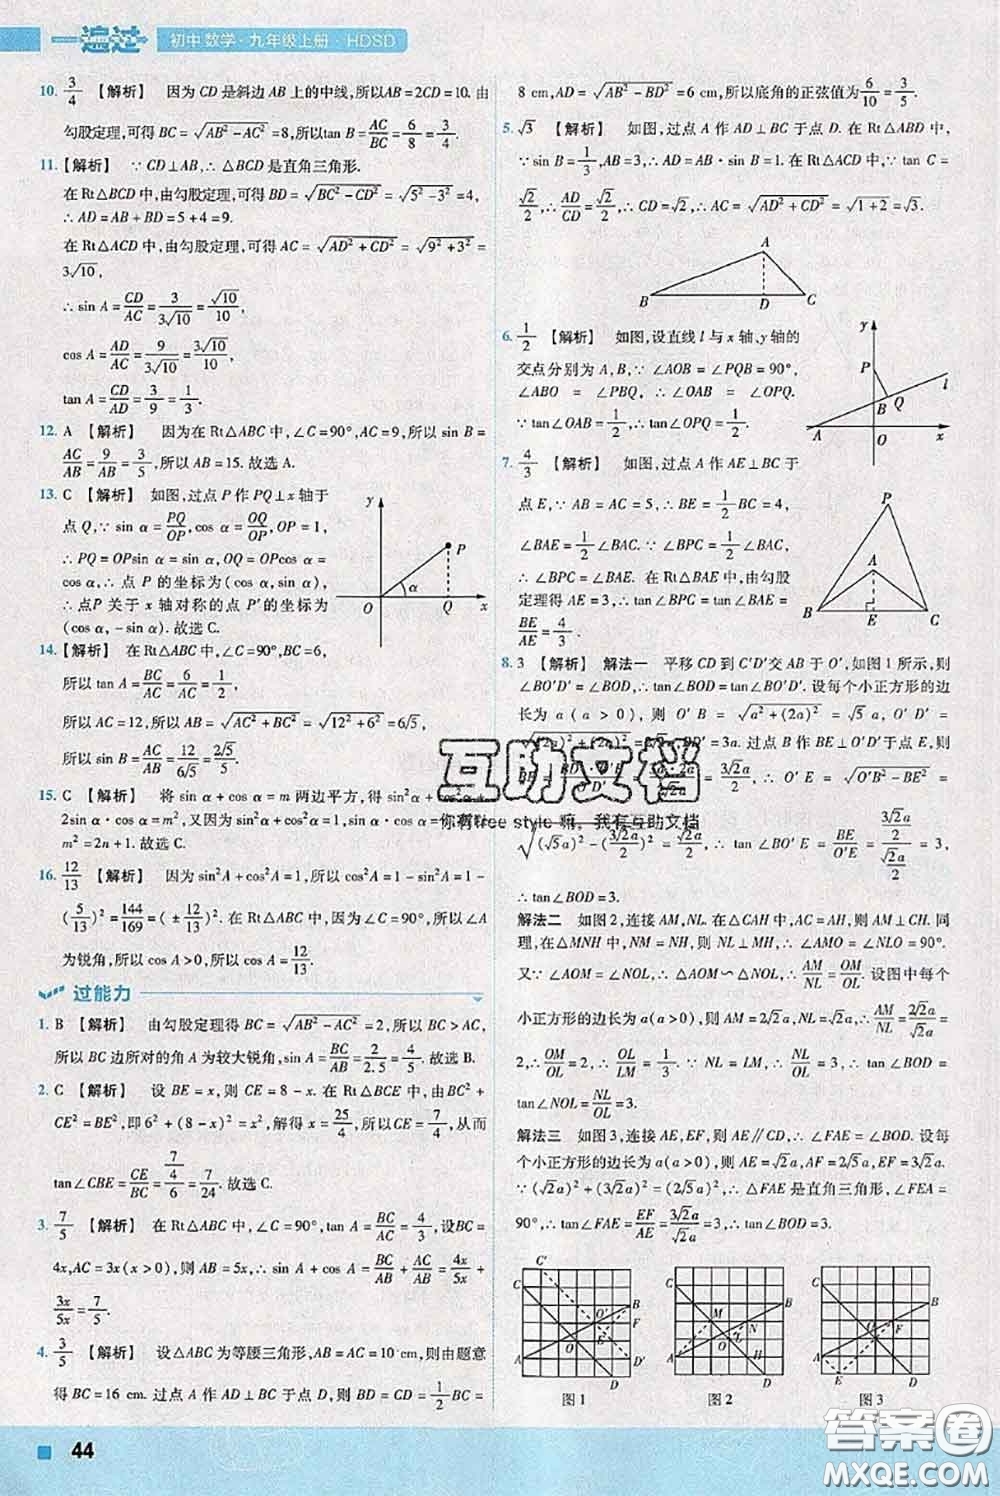 一遍过 初中数学·九年级上册·HDSD
10. 3/4 【解析】 因为 CD 是斜边 AB 上的中线,所以AB=2CD=10. 由
勾股定理,可得 BC=√(AB²-AC²)=8,所以tan B=AC/BC=6/8=3/4.
11.【解析】 ∵CD⊥AB,∴△BCD 是直角三角形.
在 Rt△BCD 中,由勾股定理,可得 BD=√(BC²-CD²)=√(5²-3²)=4,
∴AD=AB+BD=5+4=9.
在 Rt△ACD 中,由勾股定理,可得 AC=√(AD²+CD²)=√(9²+3²)=
3√10,
∴sin A=CD/AC=3/(3√10)=√10/10,
cos A=AD/AC=9/(3√10)=3√10/10,
tan A=CD/AD=3/9=1/3.
12. A 【解析】 因为在 Rt△ABC 中,∠C=90°,AC=9,所以 sin B=
AC/AB=9/AB=3/5,所以 AB=15. 故选 A.
13. C 【解析】 如图,过点 P 作 PQ⊥x 轴于
点 Q,∵sin α=PQ/OP,cos α=OQ/OP,OP=1,
∴PQ=OPsin α=sin α,OQ=OPcos α=
cos α,∴点 P 的坐标为(cos α,sin α),
∴点P 关于 x 轴对称的点 P'的坐标为
(cos α,-sin α). 故选 C.
y P α O Q x
14.【解析】 在 Rt△ABC 中,∠C=90°,BC=6,
所以 tan A=BC/AC=6/AC=1/2,
所以 AC=12,所以 AB=√(AC²+BC²)=√(12²+6²)=6√5,
所以 sin B=AC/AB=12/(6√5)=2√5/5.
15. C 【解析】 将 sin α+cos α=m 两边平方,得 sin²α+cos²α+
2sin α·cos α=m²,又因为 sin²α+cos²α=1,sin α·cos α=n,所以
m²=2n+1. 故选 C.
16. 12/13 【解析】 因为 sin²A+cos²A=1,所以 cos²A=1-sin²A=1-
(5/13)²=144/169=(±12/13)². 在 Rt△ABC 中,因为∠C=90°,所以∠A
为锐角,所以 cos A>0,所以 cos A=12/13.
过能力
1. B 【解析】 由勾股定理得 BC=√(AB²-AC²)=2,所以 BC>AC,
所以 BC 边所对的角 A 为较大锐角,sin A=BC/AB=2/2.5=4/5. 故选 B.
2. C 【解析】 设 BE=x,则 CE=8-x. 在 Rt△BCE 中,由BC²+
CE²=BE²,即 6²+(8-x)²=x²,解得 x=25/4,所以CE=7/4,从而
tan∠CBE=CE/BC=(7/4)/6=7/24. 故选 C.
3. 7/5 【解析】 在 Rt△ABC 中,∠C=90°,tan A=BC/AC=4/3,设BC=
4x,AC=3x(x>0),则 AB=5x,∴cos A+sin A
4. 3/5 【解析】 设△ABC 为等腰三角形,AB=AC=10 cm,则由题意
得 BC=16 cm. 过点 A 作 AD⊥BC 于点 D,则 BD=CD=1/2BC=
8 cm,AD=√(AB²-BD²)=6 cm,所以底角的正弦值为6/10=3/5.
5. √3 【解析】 如图,过点 A 作 AD⊥BC 于点 D. 在 Rt△ABD 中,
∵sin B=1/3,AB=3,∴AD=AB·sin B=1. 在 Rt△ACD 中,∵tan C=
√2/2,∴AD/CD=√2/2,∴CD=√2,∴AC=√(AD²+CD²)=√(1+2)=√3.
A B D C
6. 1/2 【解析】 如图,设直线 l 与 x 轴、y 轴的
交点分别为 A,B,∵∠AOB=∠PQB=90°,
∠ABO=∠PBQ,∴∠OAB=∠OPQ.
∵tan∠OAB=1/2,∴tan∠OPQ=1/2.
y P l B Q A O x
7. 4/3 【解析】 如图,过点 A 作 AE⊥BC 于
点 E,∵AB=AC=5,∴BE=1/2BC=4,
∠BAE=1/2∠BAC. ∵∠BPC=1/2∠BAC,
∴∠BPC=∠BAE. 在 Rt△BAE 中,由勾股
定理得 AE=3,∴tan∠BPC=tan∠BAE=
BE/AE=4/3.
P A B E C
8. 3 【解析】 解法一 平移 CD 到 C'D'交 AB 于 O',如图 1 所示,则
∠BO'D'=∠BOD,∴tan∠BOD=tan∠BO'D'. 设每个小正方形的边
长为 a(a>0),则 O'B=√(a²+(2a)²)=√5a,O'D'=
√((2a)²+(2a)²)=2√2a,BD'=3a. 过点 B 作 BE⊥O'D'于点 E,则
3√2a/2,∴O'E=√(O'B²-BE²)=
√((√5a)²-(3√2a/2)²)=√2a/2,∴tan∠BO'E=BE/O'E=(3√2a/2)/(√2a/2)=3,∴
tan∠BOD=3.
解法二 如图 2,连接 AM,NL. 在△CAH 中,AC=AH,则 AM⊥CH. 同
理,在△MNH 中,NM=NH,则 NL⊥MH,∴∠AMO=∠NLO=90°.
又∵∠AOM=∠NOL,∴△AOM∽△NOL,∴AM/NL=OM/OL. 设图中每个
小正方形的边长为 a(a>0),则 AM=2√2a,NL=√2a,∴AM/NL=2√2a/√2a=
2,∴OM/OL=2,∴OL/LM=1/3. ∵NL=LM,∴NL/OL=3,∴tan∠BOD=
tan∠NOL=NL/OL=3.
解法三 如图 3,连接 AE,EF,则 AE∥CD,∴∠FAE=∠BOD. 设每
个小正方形的边长为 a(a>0),则 AE=√2a,AF=2√5a,EF=3√2a.
∵(√2a)²+(3√2a)²=(2√5a)²,∴△FAE 是直角三角形,∠FEA=
90°,∴tan∠FAE=EF/AE=3√2a/√2a=3,∴tan∠BOD=3.
图 1 图 2 图 3
44
互助文档
你有free style 嘛，我有互助文档
答案圈
MXQE.COM